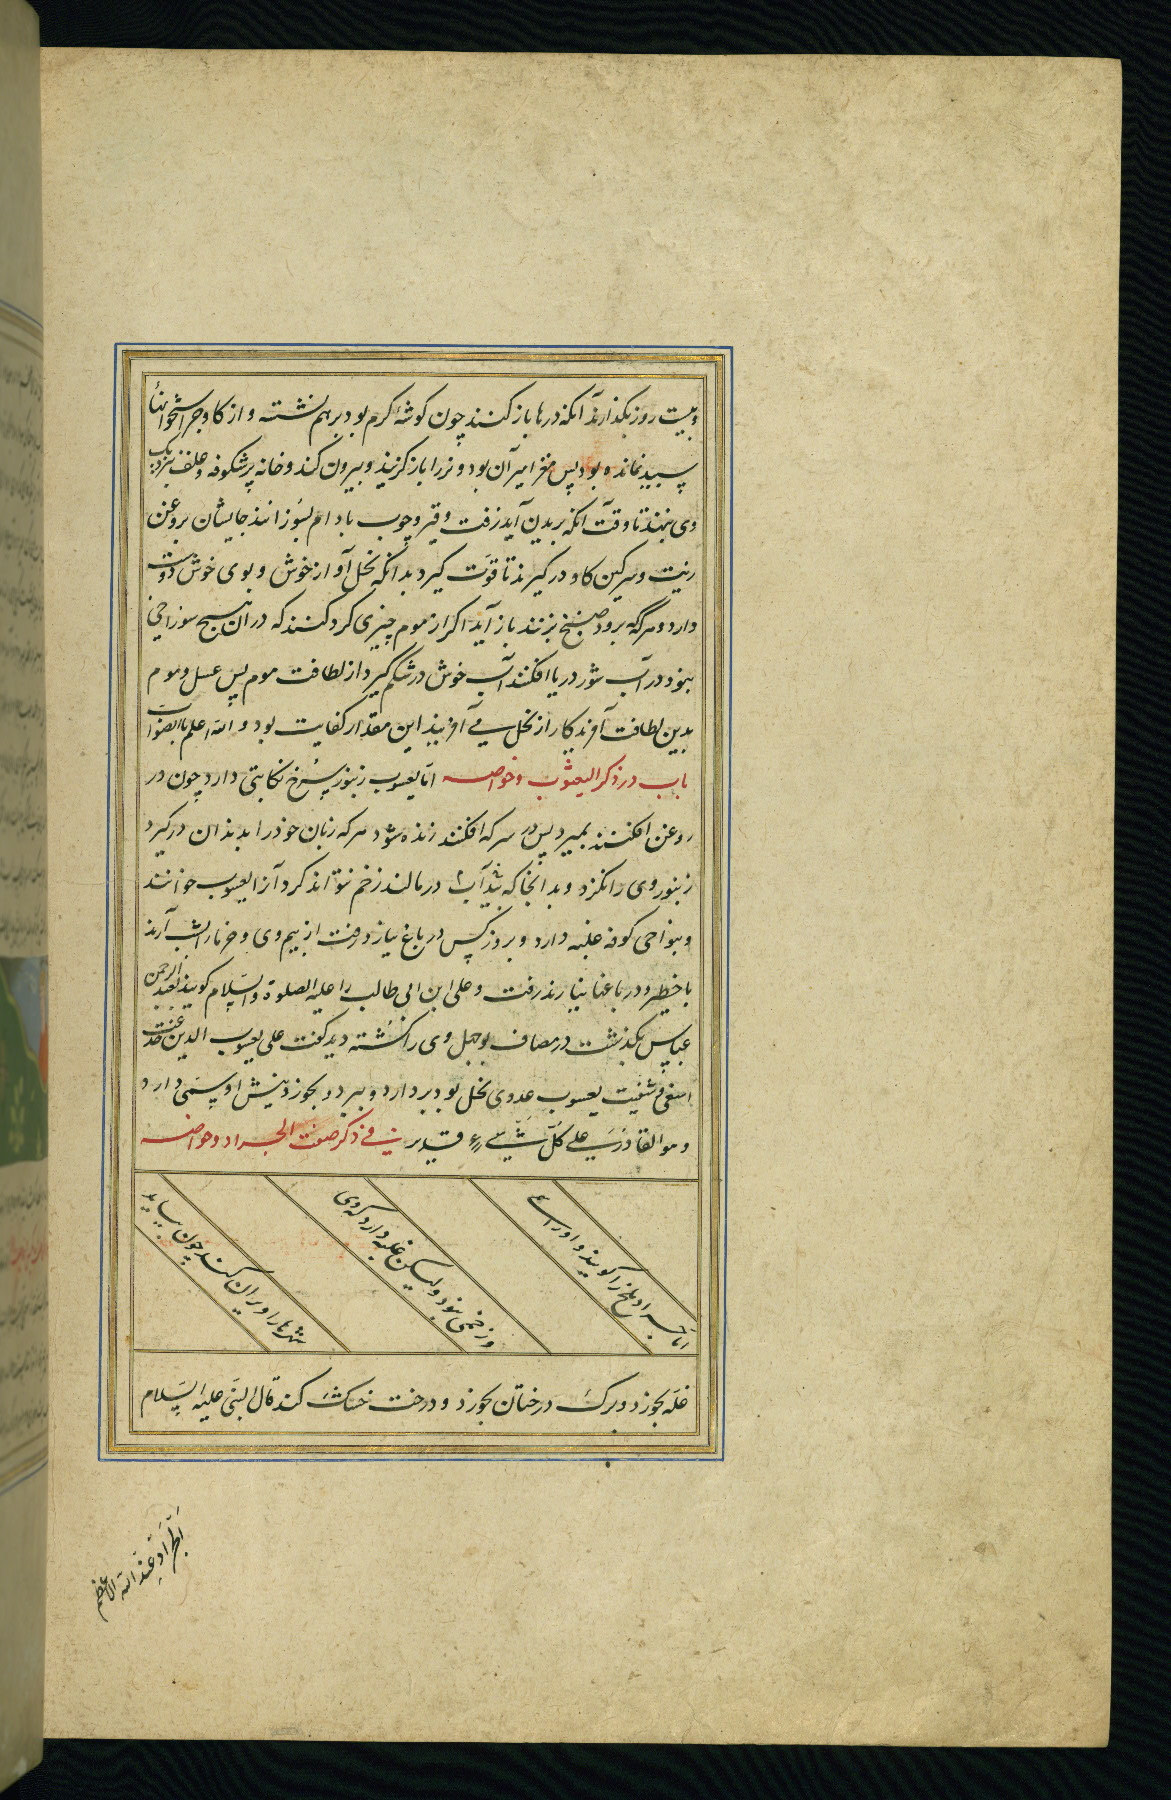 و بیست روز بگذارند آنکه درها باز کنند چون گوشه کرم بود برهم نشسته و از گاو جز استخوانهاء
سپید نمانده بود پس مغز امیر آن بود و نررا باز گزینند و بیرون کند و خانه پر شکوفه و علف نزدیک
وی بنهند تا وقت آنکه بریدن آید زفت و قیر و چوب بادام بسوزانند جایشان بروغن
زیت و سرکین کاو در گیرند تا قوت گیرد بدانکه نحل آواز خوش و بوی خوش دوست
دارد و هرگه برود صنج بزنند باز آید اکر از موم چیزی گرد کنند که در آن هیچ سوراخی
نبود در آب شور دریا افکنند آب خوش در شکم گیرد از لطافت موم پس عسل و موم
بدین لطافت آفریدگار از نحل می آفریند این مقدار کفایت بود و الله اعلم بالصواب
باب در ذکر الیعسوب و خواصه اما یعسوب زنبور سرخ نکایتی دارد چون در
روغن افکنند بمیرد پس در سرکه افکنند زنده شود هرکه زبان خود را بدندان درگیرد
زنبور وی را نگزد و بدانجا که آب درمالند زخم نتواند کرد آنرا یعسوب خوانند
و بنواحی کوفه غلبه دارد و بروز کس در باغ نیارد رفت از بیم وی و خرما را بشب آرند
با خطیر و در باغها نیارند رفت و علی ابن ابی طالب را علیه الصلوة والسلام گویند بعبد الرحمن
عباس بگذشت در مصاف بوجهل وی را کشته دید گفت علی یعسوب الدین
اسفی و شفیت یعسوب عدوی نحل بود بردارد و ببرد و بخورد و نیش او سمی دارد
و هو القادر علی کل شیء قدیر فی ذکر صفت الجراد و خواصه
اما جراد ملخ را گویند و او را
و زخمی نبود ولیکن غلبه دارد که وی
شهرها را ویران کند چون بیاید
غله بخورد و برک درختان بخورد و درخت خشک کند قال النبی علیه السلام
الجراد عند الله الاعظم